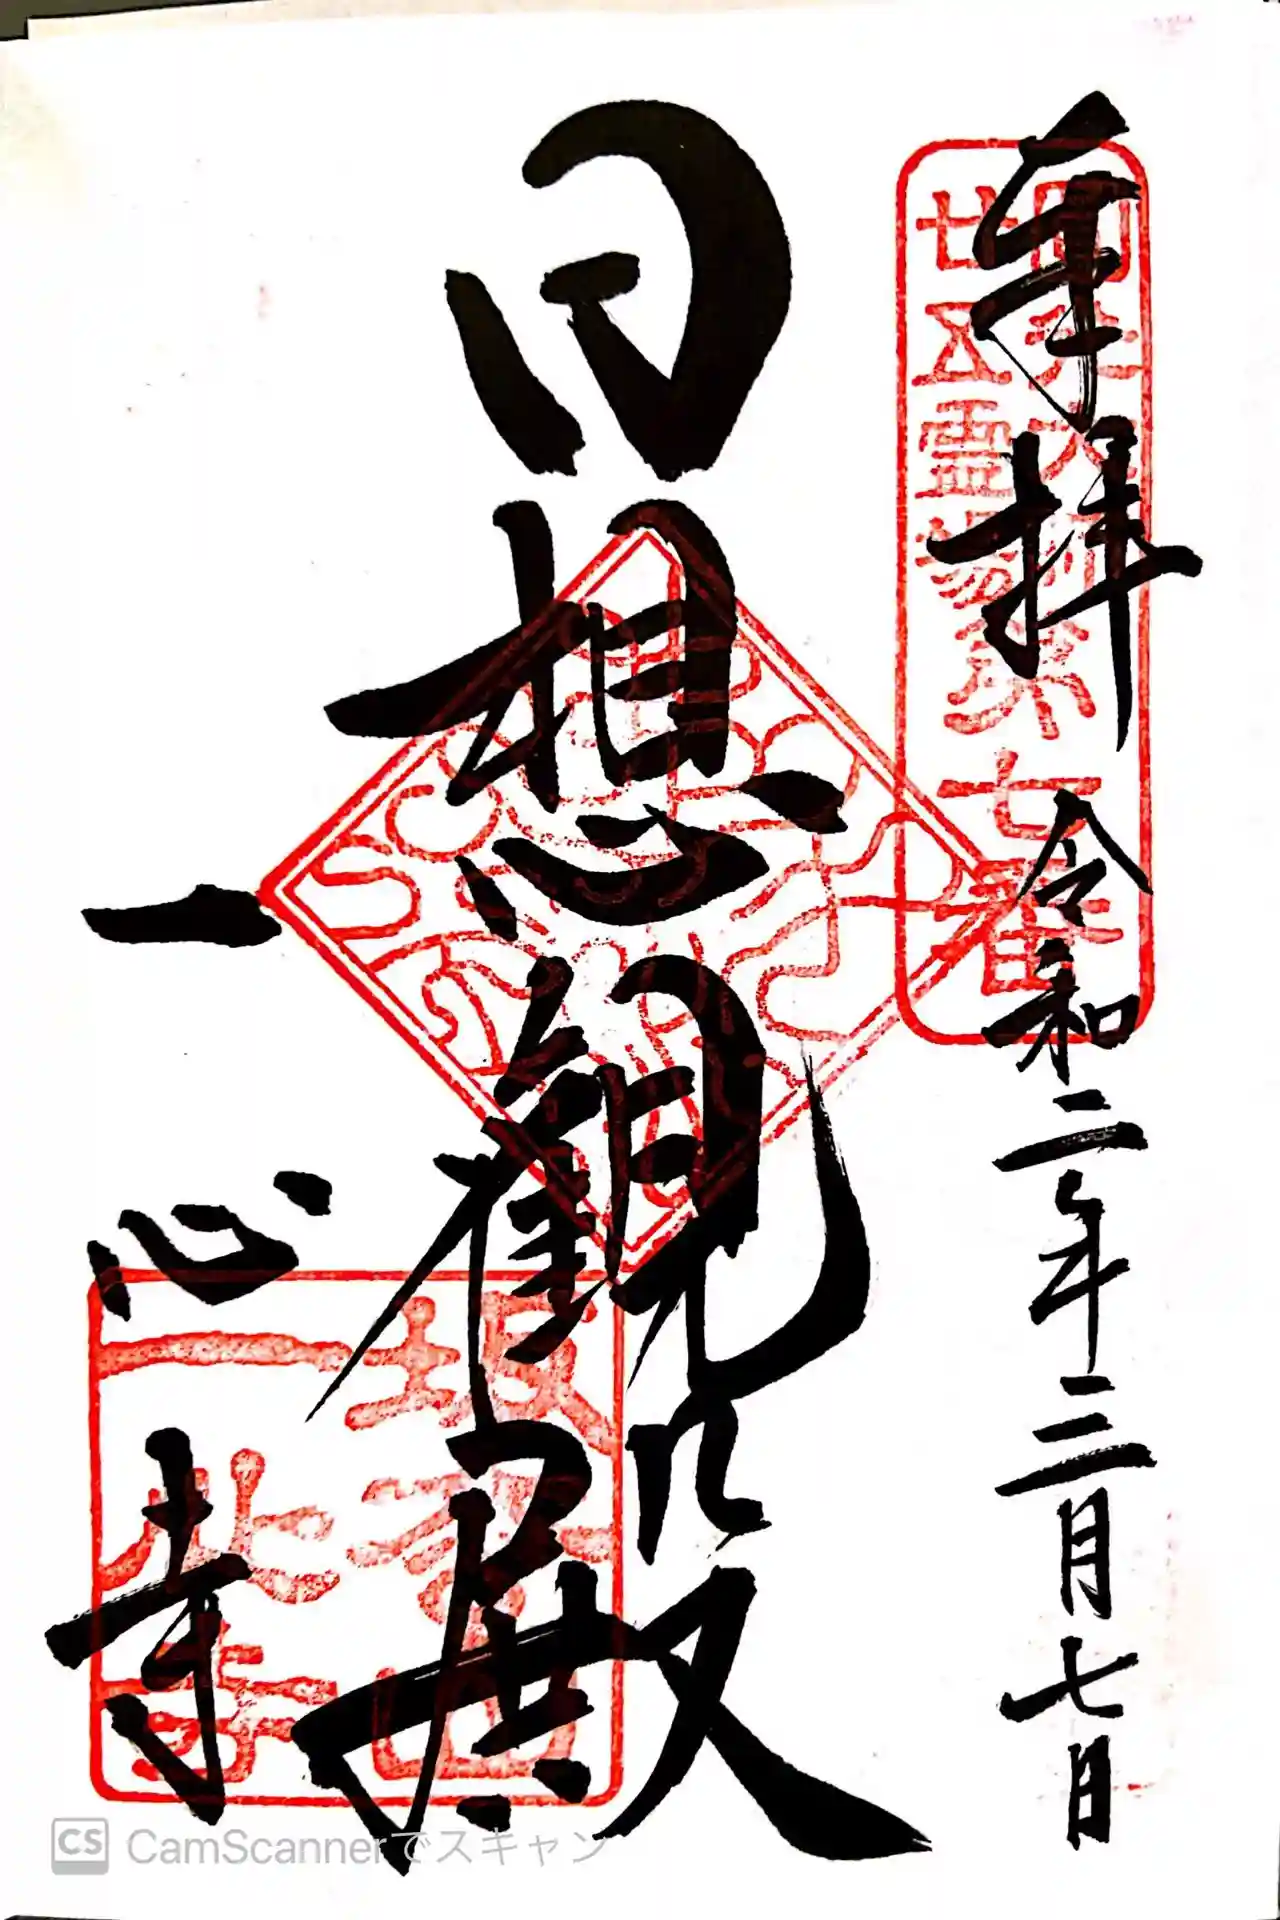 奉拝 令和二年三月七日
圓光大師
廿五霊場第七番
日想観殿
一心寺
坂松山
一心寺
CS CamScannerでスキャン